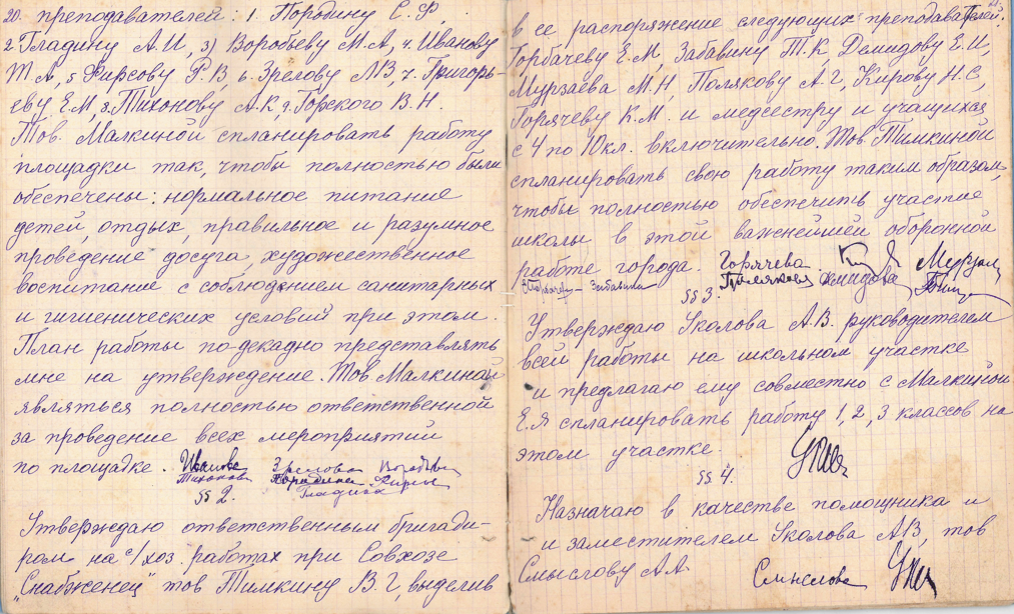 20. преподавателей: 1. Породину С. Ф,
2 Гладину А.И, 3) Воробьеву М.А, 4. Иванову
Т.А, 5 Фирсову Р.В 6. Зрелову Л.В, 7. Григорь-
еву Е.М, 8. Тихонову А.К 9. Горского В.Н.
Тов. Малкиной спланировать работу
площадки так, чтобы полностью были
обеспечены: нормальное питание
детей, отдых, правильное и разумное
проведение досуга, художественное
воспитание с соблюдением санитарных
и гигиенических условий при этом.
План работы по-декадно представлять
мне на утверждение. Тов Малкиной
являться полностью ответственной
за проведение всех мероприятий
по площадке. Иванова Зрелова Воробьева
Тихонова Породина
Гладина
§§ 2.
Утверждаю ответственным бригади-
ром на с/хоз. работах при Совхозе
„Снабженец" тов Тимкину В.Г, выделив
в ее распоряжение следующих преподавателей:
Горбачеву Е.М, Забавину Т.К, Демидову Е.И,
Мурзаева М.Н, Полякову А.Г, Кирову Н.С,
Горячеву К.М. и медсестру и учащихся
с 4 по 10 кл. включительно. Тов. Тимкиной
спланировать свою работу таким образом,
чтобы полностью обеспечить участие
школы в этой важнейшей оборонной
работе города. Горячева.
Забавина Полякова Демидова
§§ 3.
Утверждаю Уколова А.В. руководителем
всей работы на школьном участке
и предлагаю ему совместно с Малкиной
Е.Я спланировать работу 1, 2, 3 классов на
этом участке.
§§ 4.
Назначаю в качестве помощника и
и заместителем Уколова АВ, тов
Смыслову А.А.
Смыслова